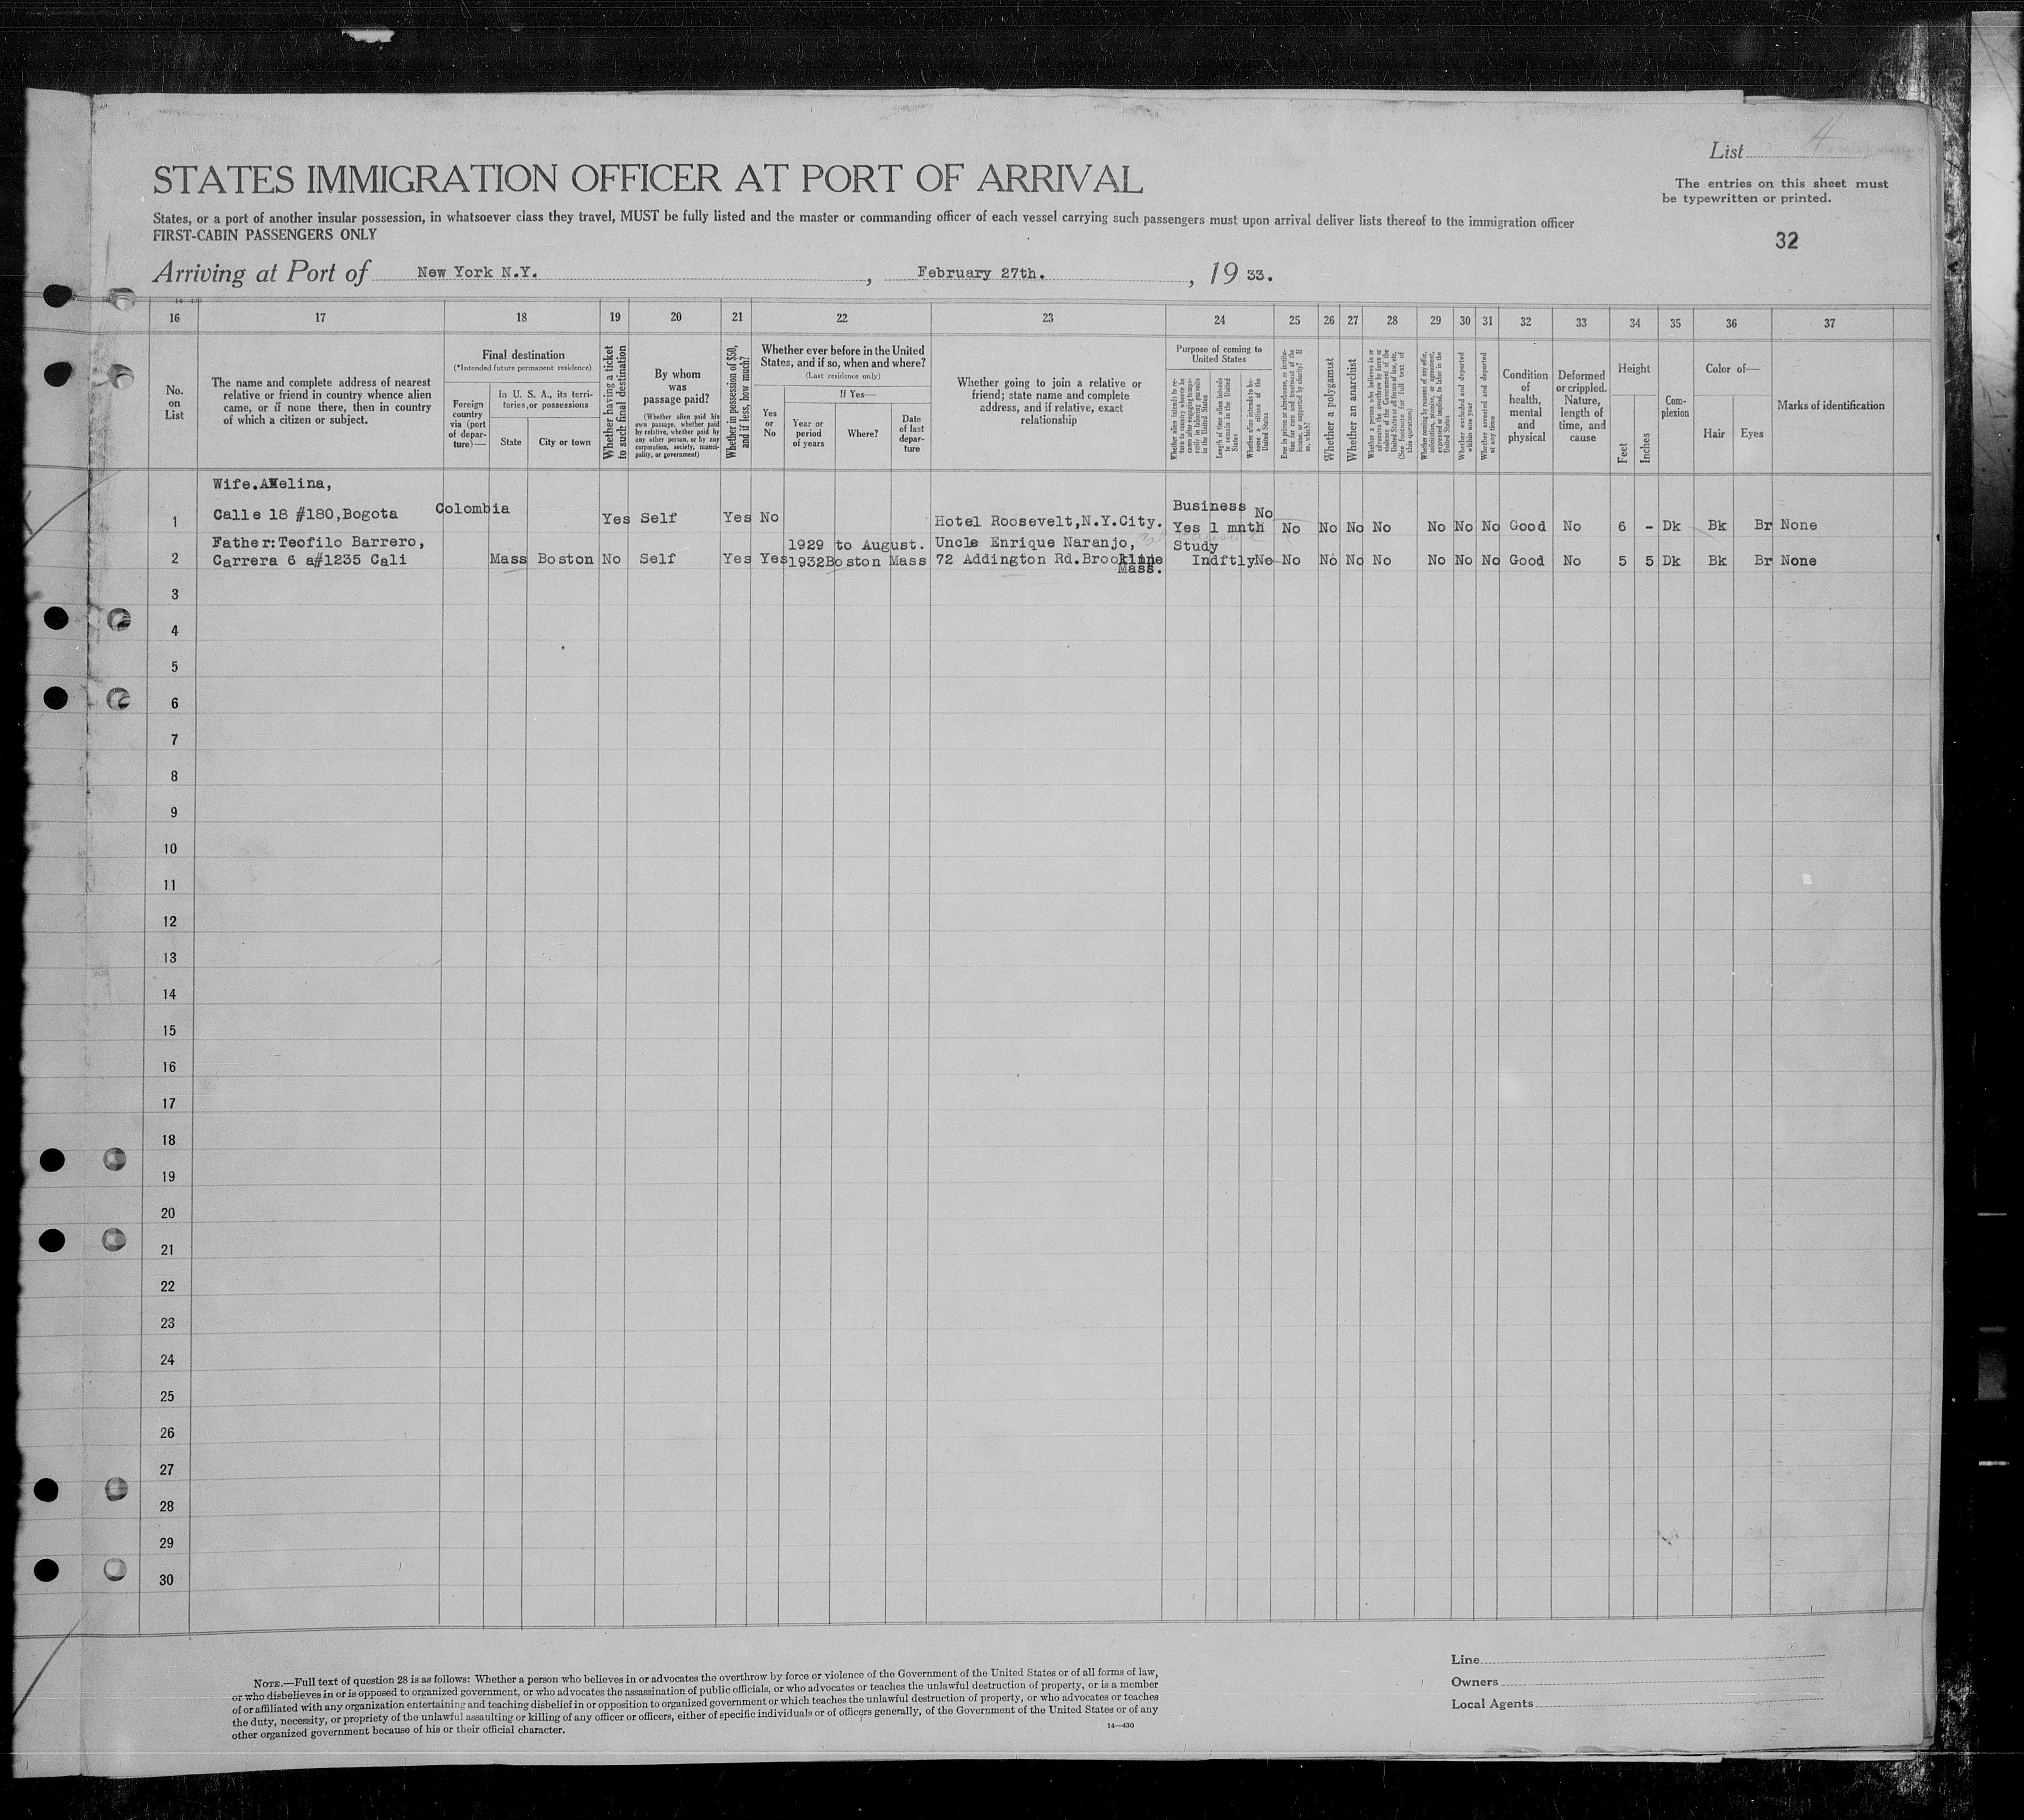 List 4
STATES IMMIGRATION OFFICER AT PORT OF ARRIVAL
The entries on this sheet must
be typewritten or printed.
States, or a port of another insular possession, in whatsoever class they travel, MUST be fully listed and the master or commanding officer of each vessel carrying such passengers must upon arrival deliver lists thereof to the immigration officer
FIRST-CABIN PASSENGERS ONLY
32
Arriving at Port of New York N.Y. , February 27th. , 19 33.
16 17 18 19 20 21 22 23 24 25 26 27 28 29 30 31 32 33 34 35 36 37
No.
on
List
The name and complete address of nearest
relative or friend in country whence alien
came, or if none there, then in country
of which a citizen or subject.
Final destination
(*Intended future permanent residence)
Foreign
country
via (port
of depar-
ture)—
In U. S. A., its terri-
tories, or possessions
State
City or town
Whether having a ticket
to such final destination
By whom
was
passage paid?
(Whether alien paid his
own passage, whether paid
by relative, whether paid by
any other person, or by any
corporation, society, munici-
pality, or government)
Whether in possession of $50,
and if less, how much?
Whether ever before in the United
States, and if so, when and where?
(Last residence only)
Yes
or
No
If Yes—
Year or
period
of years
Where?
Date
of last
depar-
ture
Whether going to join a relative or
friend; state name and complete
address, and if relative, exact
relationship
Purpose of coming to
United States
Whether alien intends to re-
turn to country whence he
came after engaging tempo-
rarily in laboring pursuits
in the United States
Length of time alien intends
to remain in the United
States
Whether alien intends to be-
come a citizen of the
United States
Ever in prison or almshouse, or institu-
tion for care and treatment of the
insane, or supported by charity? If
so, which?
Whether a polygamist
Whether an anarchist
Whether a person who believes in or
advocates the overthrow by force or
violence of the Government of the
United States or all forms of law, etc.
(See footnote for full text of
this question)
Whether coming by reason of any offer,
solicitation, promise, or agreement,
expressed or implied, to labor in the
United States
Whether excluded and deported
within one year
Whether arrested and deported
at any time
Condition
of
health,
mental
and
physical
Deformed
or crippled.
Nature,
length of
time, and
cause
Height
Feet
Inches
Com-
plexion
Color of—
Hair
Eyes
Marks of identification
Wife. Amelina,
1 Calle 18 #180,Bogota Colombia Yes Self Yes No Hotel Roosevelt,N.Y.City. Business Yes 1 mnth No No No No No No No No Good No 6 - Dk Bk Br None
Father:Teofilo Barrero, 1929 to August. Uncle Enrique Naranjo, Study
2 Carrera 6 a#1235 Cali Mass Boston No Self Yes Yes 1932 Boston Mass 72 Addington Rd.Brookline Indftly No No No No No No No No Good No 5 5 Dk Bk Br None
Mass.
3
4
5
6
7
8
9
10
11
12
13
14
15
16
17
18
19
20
21
22
23
24
25
26
27
28
29
30
NOTE.—Full text of question 28 is as follows: Whether a person who believes in or advocates the overthrow by force or violence of the Government of the United States or of all forms of law,
or who disbelieves in or is opposed to organized government, or who advocates the assassination of public officials, or who advocates or teaches the unlawful destruction of property, or is a member
of or affiliated with any organization entertaining and teaching disbelief in or opposition to organized government or which teaches the unlawful destruction of property, or who advocates or teaches
the duty, necessity, or propriety of the unlawful assaulting or killing of any officer or officers, either of specific individuals or of officers generally, of the Government of the United States or of any
other organized government because of his or their official character.
14—430
Line
Owners
Local Agents